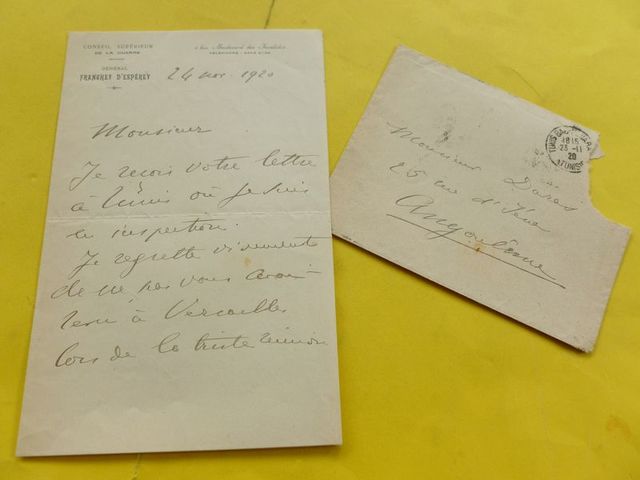 CONSEIL SUPÉRIEUR
DE LA GUERRE
GÉNÉRAL
FRANCHET D'ESPÉREY
4 bis Boulevard des Invalides
24 nov. 1920
Monsieur
Je reçois votre lettre
à Tunis où je suis
en inspection.
Je regrette vivement
de ne pas vous avoir
venu à Versailles
lors de la triste réunion
Monsieur
25 rue d'Iéna
Angoulême
18 15
23 -11
20
TUNISIE